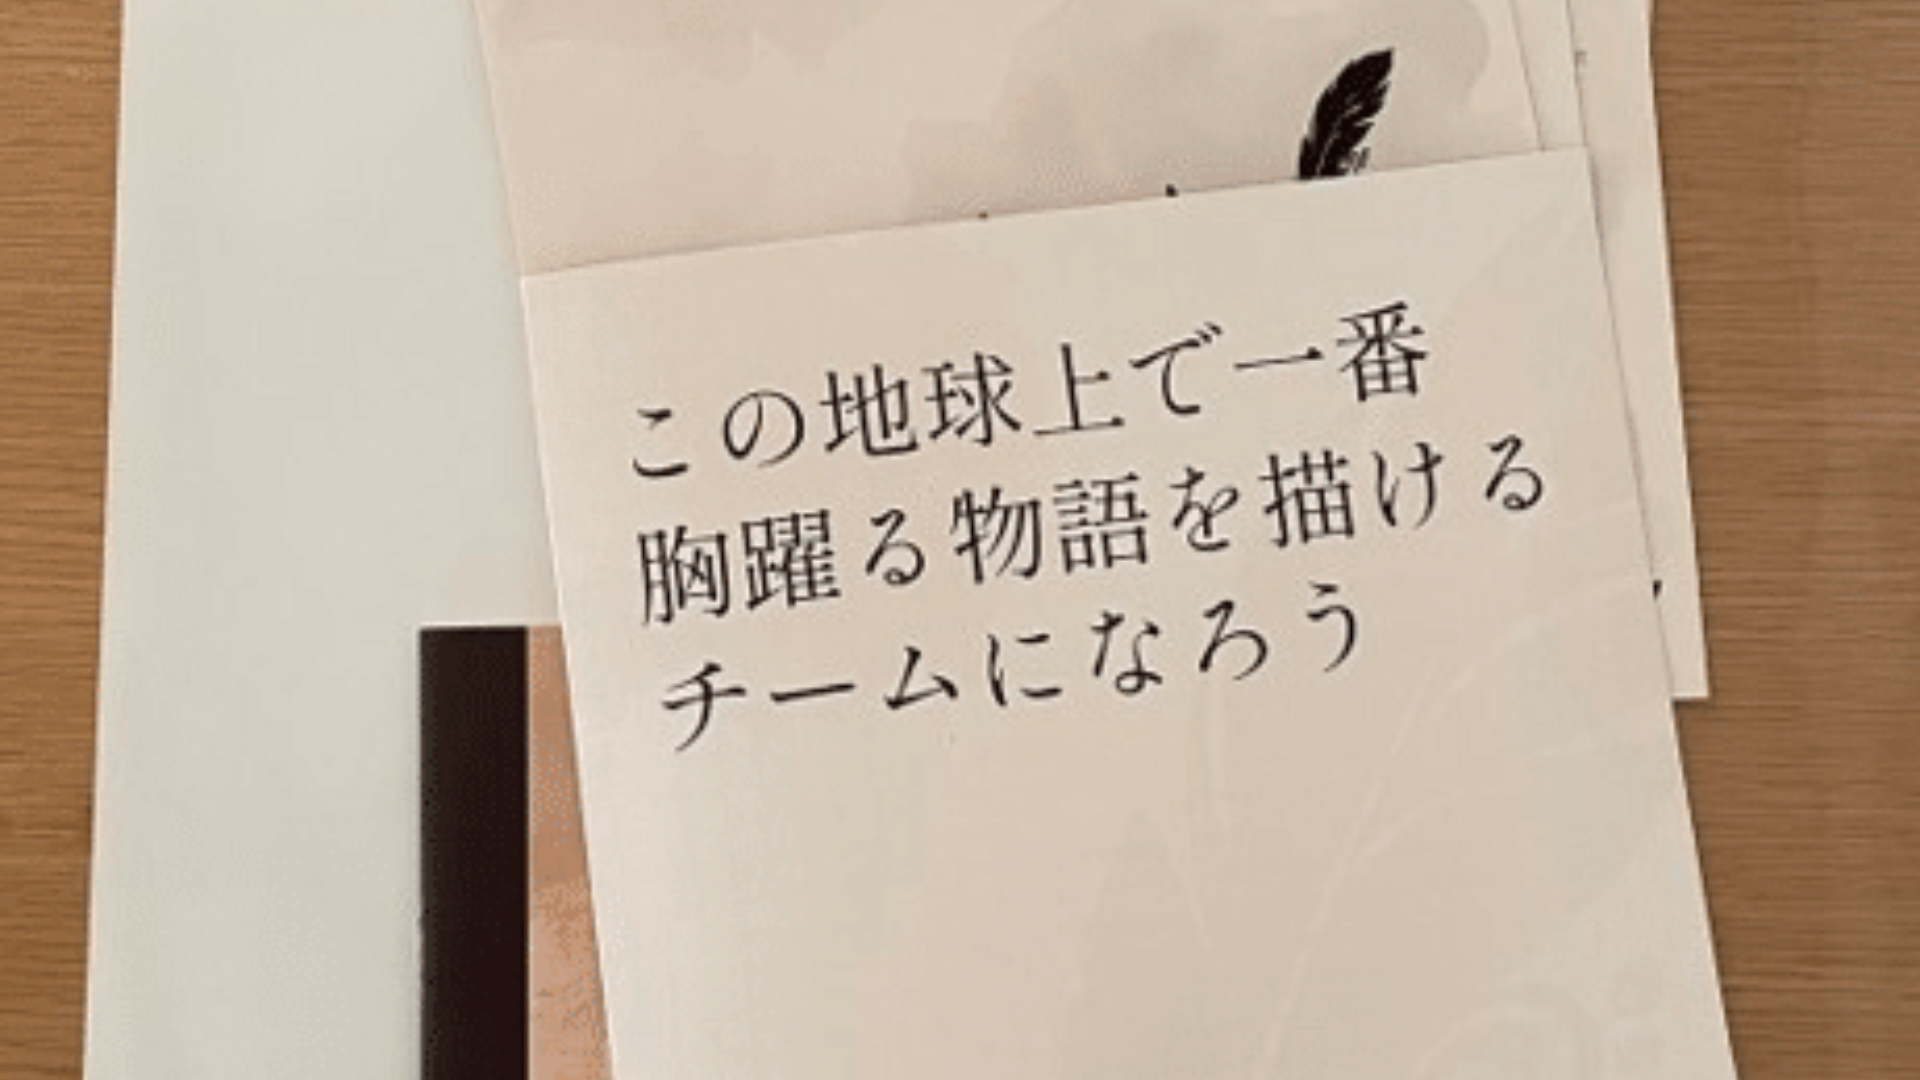 この地球上で一番
胸躍る物語を描ける
チームになろう